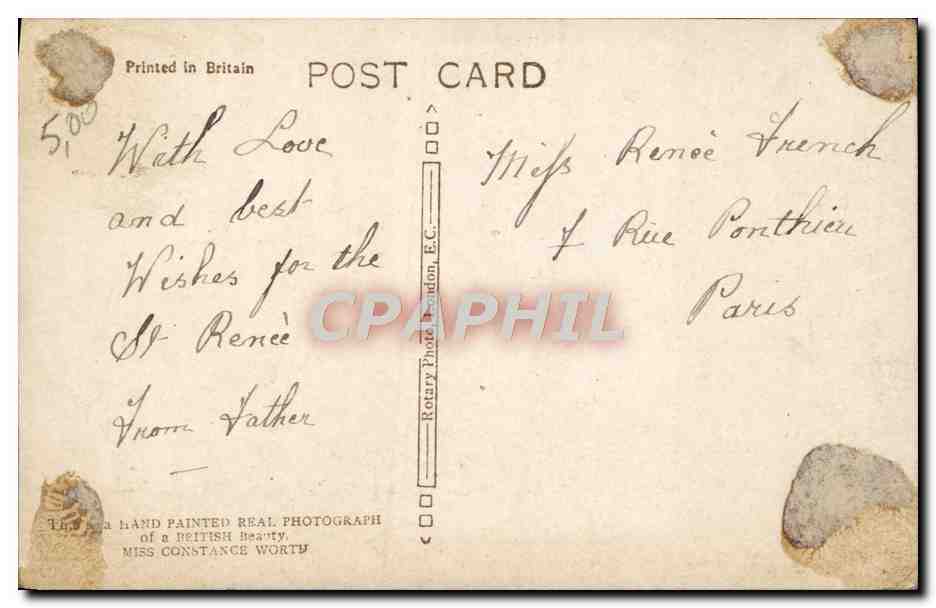 Printed in Britain
POST CARD
5,00
With Love
and best
Wishes for the
St Renée
From Father
Miss Renée French
7 Rue Ponthieu
Paris
Rotary Photo, London, E.C.
CPAPHIL
This is a HAND PAINTED REAL PHOTOGRAPH
of a BRITISH Beauty.
MISS CONSTANCE WORTH